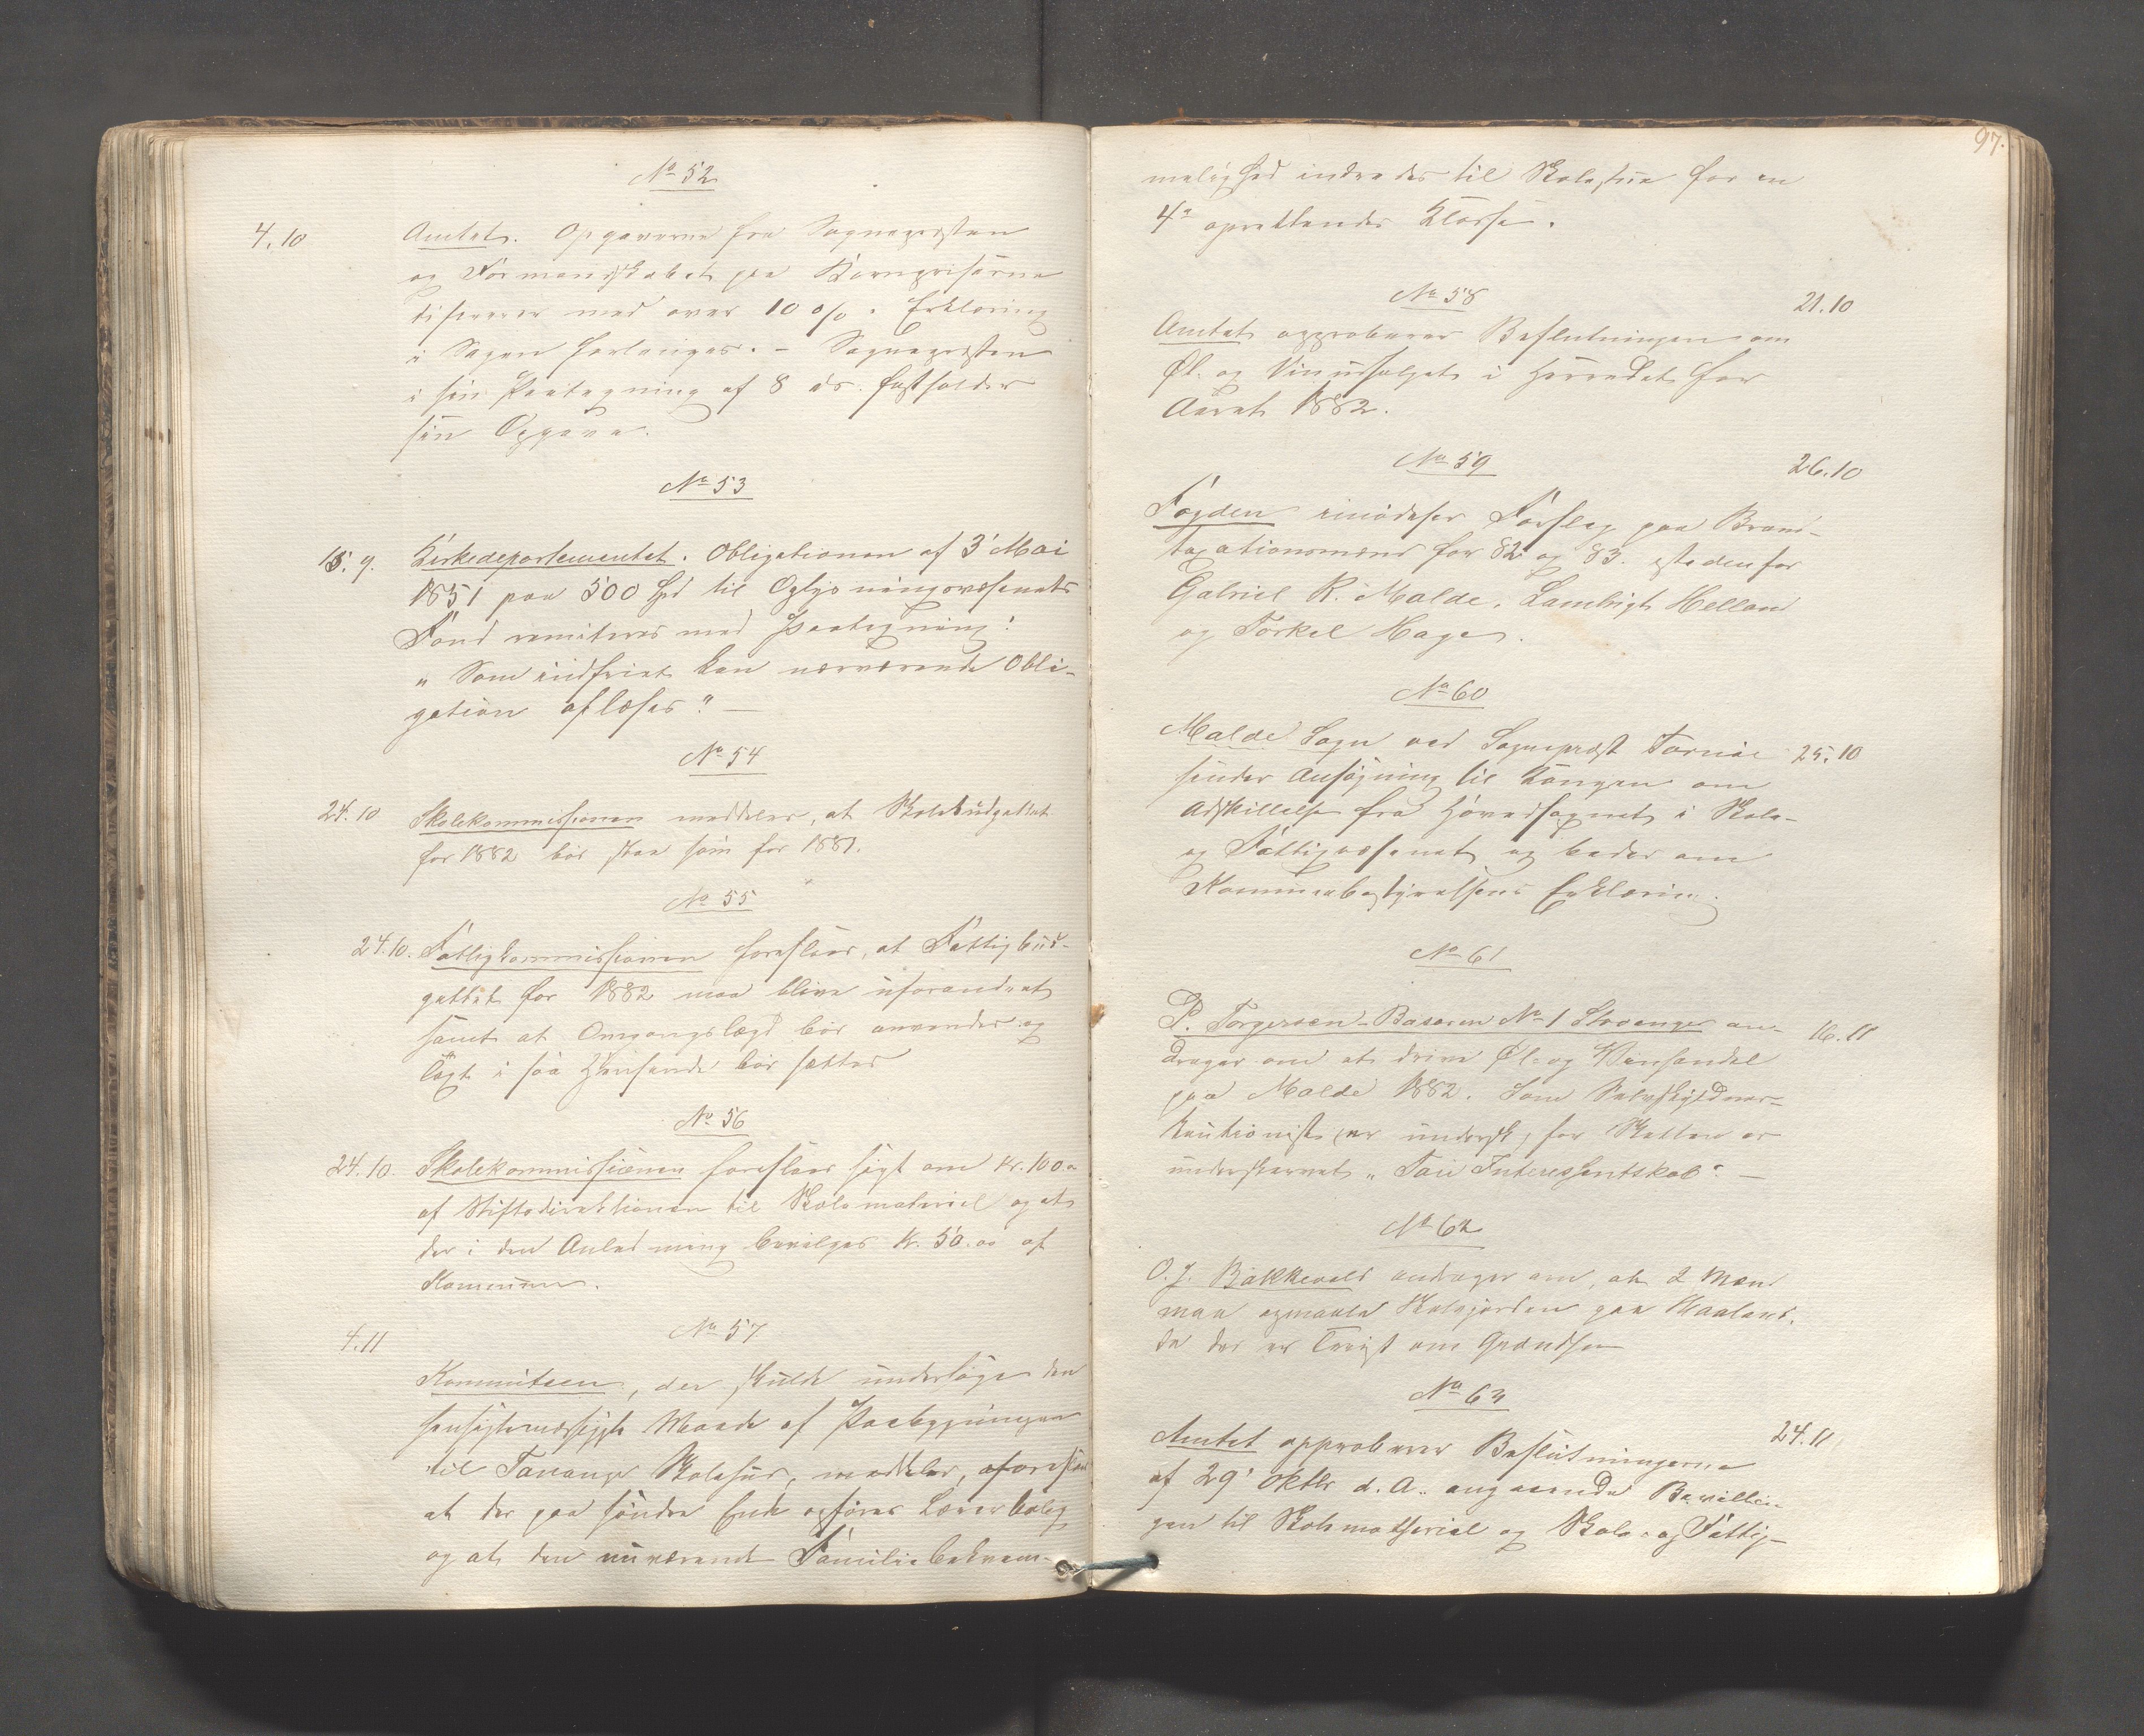 No 52
4.10
Amtet. Opgaverne fra Sognepresten
og Formandskabet paa Kornpriserne
difererer med over 10 o/o. Erklæring
i Sagen forlanges. - Sognepresten
i sin Paategning af 8 ds. fastholder
sin Opgave.
No 53
15. 9. Kirkedepartementet. Obligationen af 3' Mai
1851 paa 500 Spd til Oplysningsvæsenets
Fond remiteres med Paategning:
" Som indfriet kan nærværende Obli-
gation aflæses". —
No 54
24.10 Skolekommissionen meddeler, at Skolebudgettet
for 1882 bør staa som for 1881.
No 55
24.10. Fattigkommissionen foreslaar, at Fattigbud-
gettet for 1882 maa blive uforandret
samt at Omgangslægd bør anvendes og
Lægt i saa Henseende bør sættes
No 56
24.10. Skolekommissionen foreslaar søgt om Kr. 100.
af Stiftsdirektionen til Skolemateriel og at
der i den Anledning bevilges Kr. 50.00 af
Kommunen.
No 57
4.11
Kommiteen, der skulde undersøge den
hensigtsmæssigste Maade af Paabygningen
til Tananger Skolehus, meddeler, foreslaar
at der paa søndre Ende opføres Lærerbolig
og at den nuværende Familiebekvem-
97.
melighed indredes til Skolestue for en
4de oprettendes Klasse.
No 58
21.10
Amtet approberer Beslutningen om
Øl- og Vinudsalget i Herredet for
Aaret 1882.
No 59
26.10
Fogden imødeser Forslag paa Brand-
taxationsmænd for 82 og 83. istedenfor
Gabriel R. Malde, Lambrigt Helland
og Torkel Hage.
No 60
Malde Sogn ved Sogneprest Tornøe 25.10
sender Ansøgning til Kongen om
Adskillelse fra Hovedsognet i Skole-
og Fattigvæsenet og beder om
Kommunebestyrelsens Erklæring.
No 61
P. Torgersen - Basaren No 1 Stavanger an- 16.11
drager om at drive Øl- og Vinhandel
paa Malde 1882. Som Selvskyldner-
kautionist for Skatten er
underskrevet "Interessentskab". —
No 62
O. J. Bakkevold andrager om, at 2 Mænd
maa opmaale Skolejorden paa Maaland.
da der er Tvist om Grændsen
No 63
24.11
Amtet approberer Beslutningerne
af 29' Oktbr d. A. angaaende Bevillin-
gen til Skolematheriel og Skole- og Fattig-